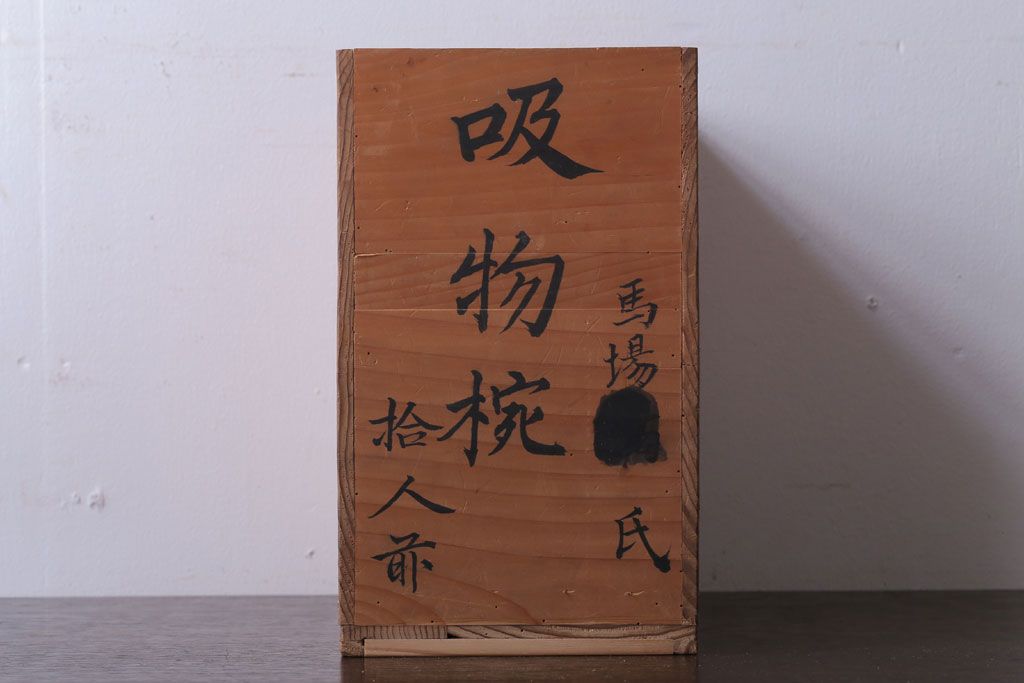 馬場 氏
吸物椀
拾人前